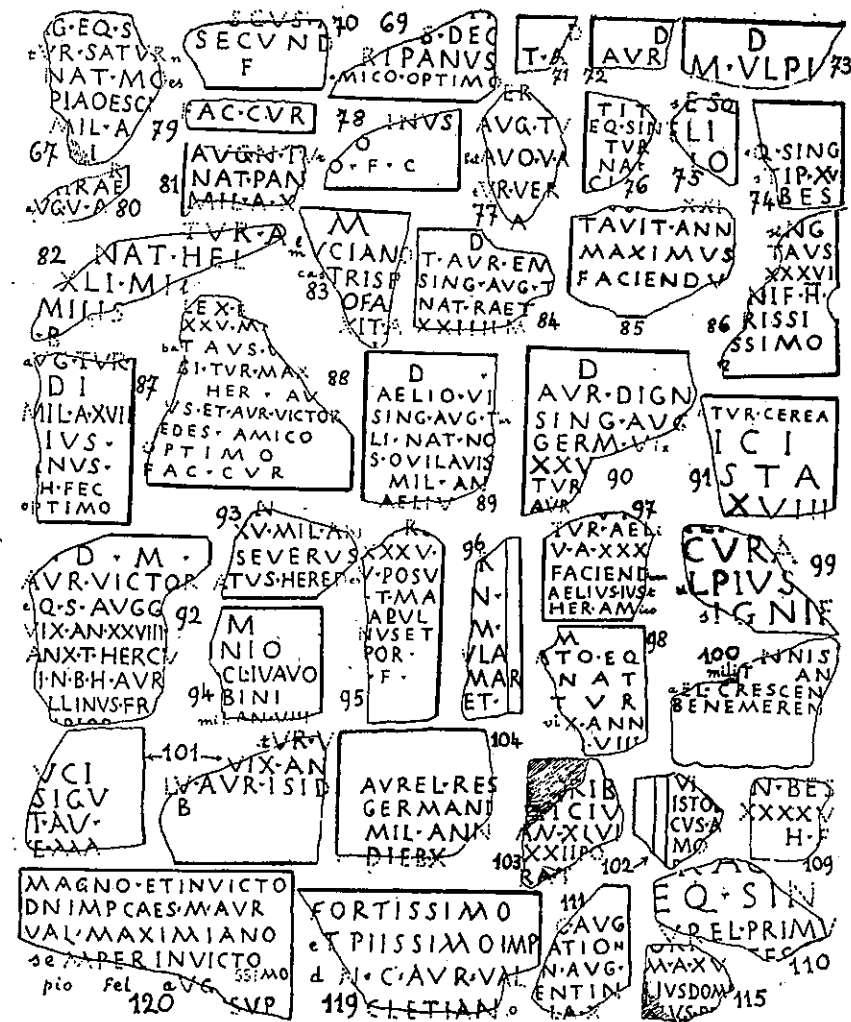 G·EQ·S
VR·SATVRn
NAT·MOes
PIAOESCI
MIL·A
67
SECVND
F
70
69
S·DEC
RIPANVS
MICO·OPTIMO
D
T·A
71
D
AVR
72
D
M·VLPI
73
79
AC·CVR
78
INVS
O
O·F·C
ER
AVG·T
AVO·VA
VR·VER
A
77
TIT
EQ·SIN
TVR
NAT
76
ESQ
LI
IO
75
Q·SING
TIP·XV
BES
74
RAE
aVGV·A
80
81
NAT·PAN
MIL·A·X
82
TVR·A
NAT·HEL
XLI·MIl
MILIS
M
VCIANO
TRISP
OFA
XIT·A
83
D
T·AVR·EM
SING·AVG·T
NAT·RAET
XXIIIIM
84
XXI
TAVIT·ANN
MAXIMUS
FACIENDV
85
siNG
TAVS
XXXVI
NIF·H·
RISSI
SSIMO
86
aVG·TVR
DI
MIL·A·XVII
IVS·
INVS·
H·FEC
opTIMO
87
LEX·E
XXV·M
baTAVS·
GI·TVR·MAX
HER·AV
VS·ET·AVR·VICTOR
EDES·AMICO
OPTIMO
FAC·CVR
88
D
AELIO·VI
SING·AVG·Tur
LI·NAT·NO
S·OVILAVIS
MIL·AN
AELIV
89
D
AVR·DIGN
SING·AVG
GERM·Vix
XXV
TVR
AVR
90
TVR·CEREA
ICI
STA
XVIII
91
D·M·
AVR·VICTOR
eQ·S·AVGG
VIX·AN·XXVIII
ANX·T·HERCV
I·N·B·H·AVR
LLINVS·FR
92
93
N
XV·MIL·AN
SEVERVS
ATVS·HEREDes
M
NIO
CLIVAVO
BINI
94
mil·AN·VIII
K
XXXV·
V·POSV
T·MA
APVL
NVSET
POR·
·F·
95
96
K
N·
M·
VLA
MAR
ET·
97
TVR·AELi
V·A·XXX
FACIENDum
AELIVSIVSt
HER·AMico
98
M
STO·EQ
NAT
TVR
viX·ANN
·VIII
CVRA
uLPIVS
SIGNIF
99
100
INNIS
milit AN
aEL·CRESCEN
BENEMEREN
VCI
SIGV
T·AV·
101
tVR·V
VIX·AN
IV·AVR·ISID
B
104
AVREL·RES
GERMANI
MIL·ANN
DIEBX
RIB
ICIV
AN·XLVI
XXIIPO
RAT
103
VI
ISTO
CVS·A
MO
102
N·BES
XXXXV
H·F
109
MAGNO·ETINVICTO
DNIMPCAES·M·AVR
VAL·MAXIMIANO
seMPERINVICTO
pio fel aVG SSIMO
SVP
120
FORTISSIMO
eTPIISSIMOIMP
dN·C·AVR·VAL
CLETIANo
119
111
·AVG
ATION
N·AVG·
ENTIN
I·A·X
EQ·SIN
VREL·PRIMV
110
M·A·XV
IVSDOM
115